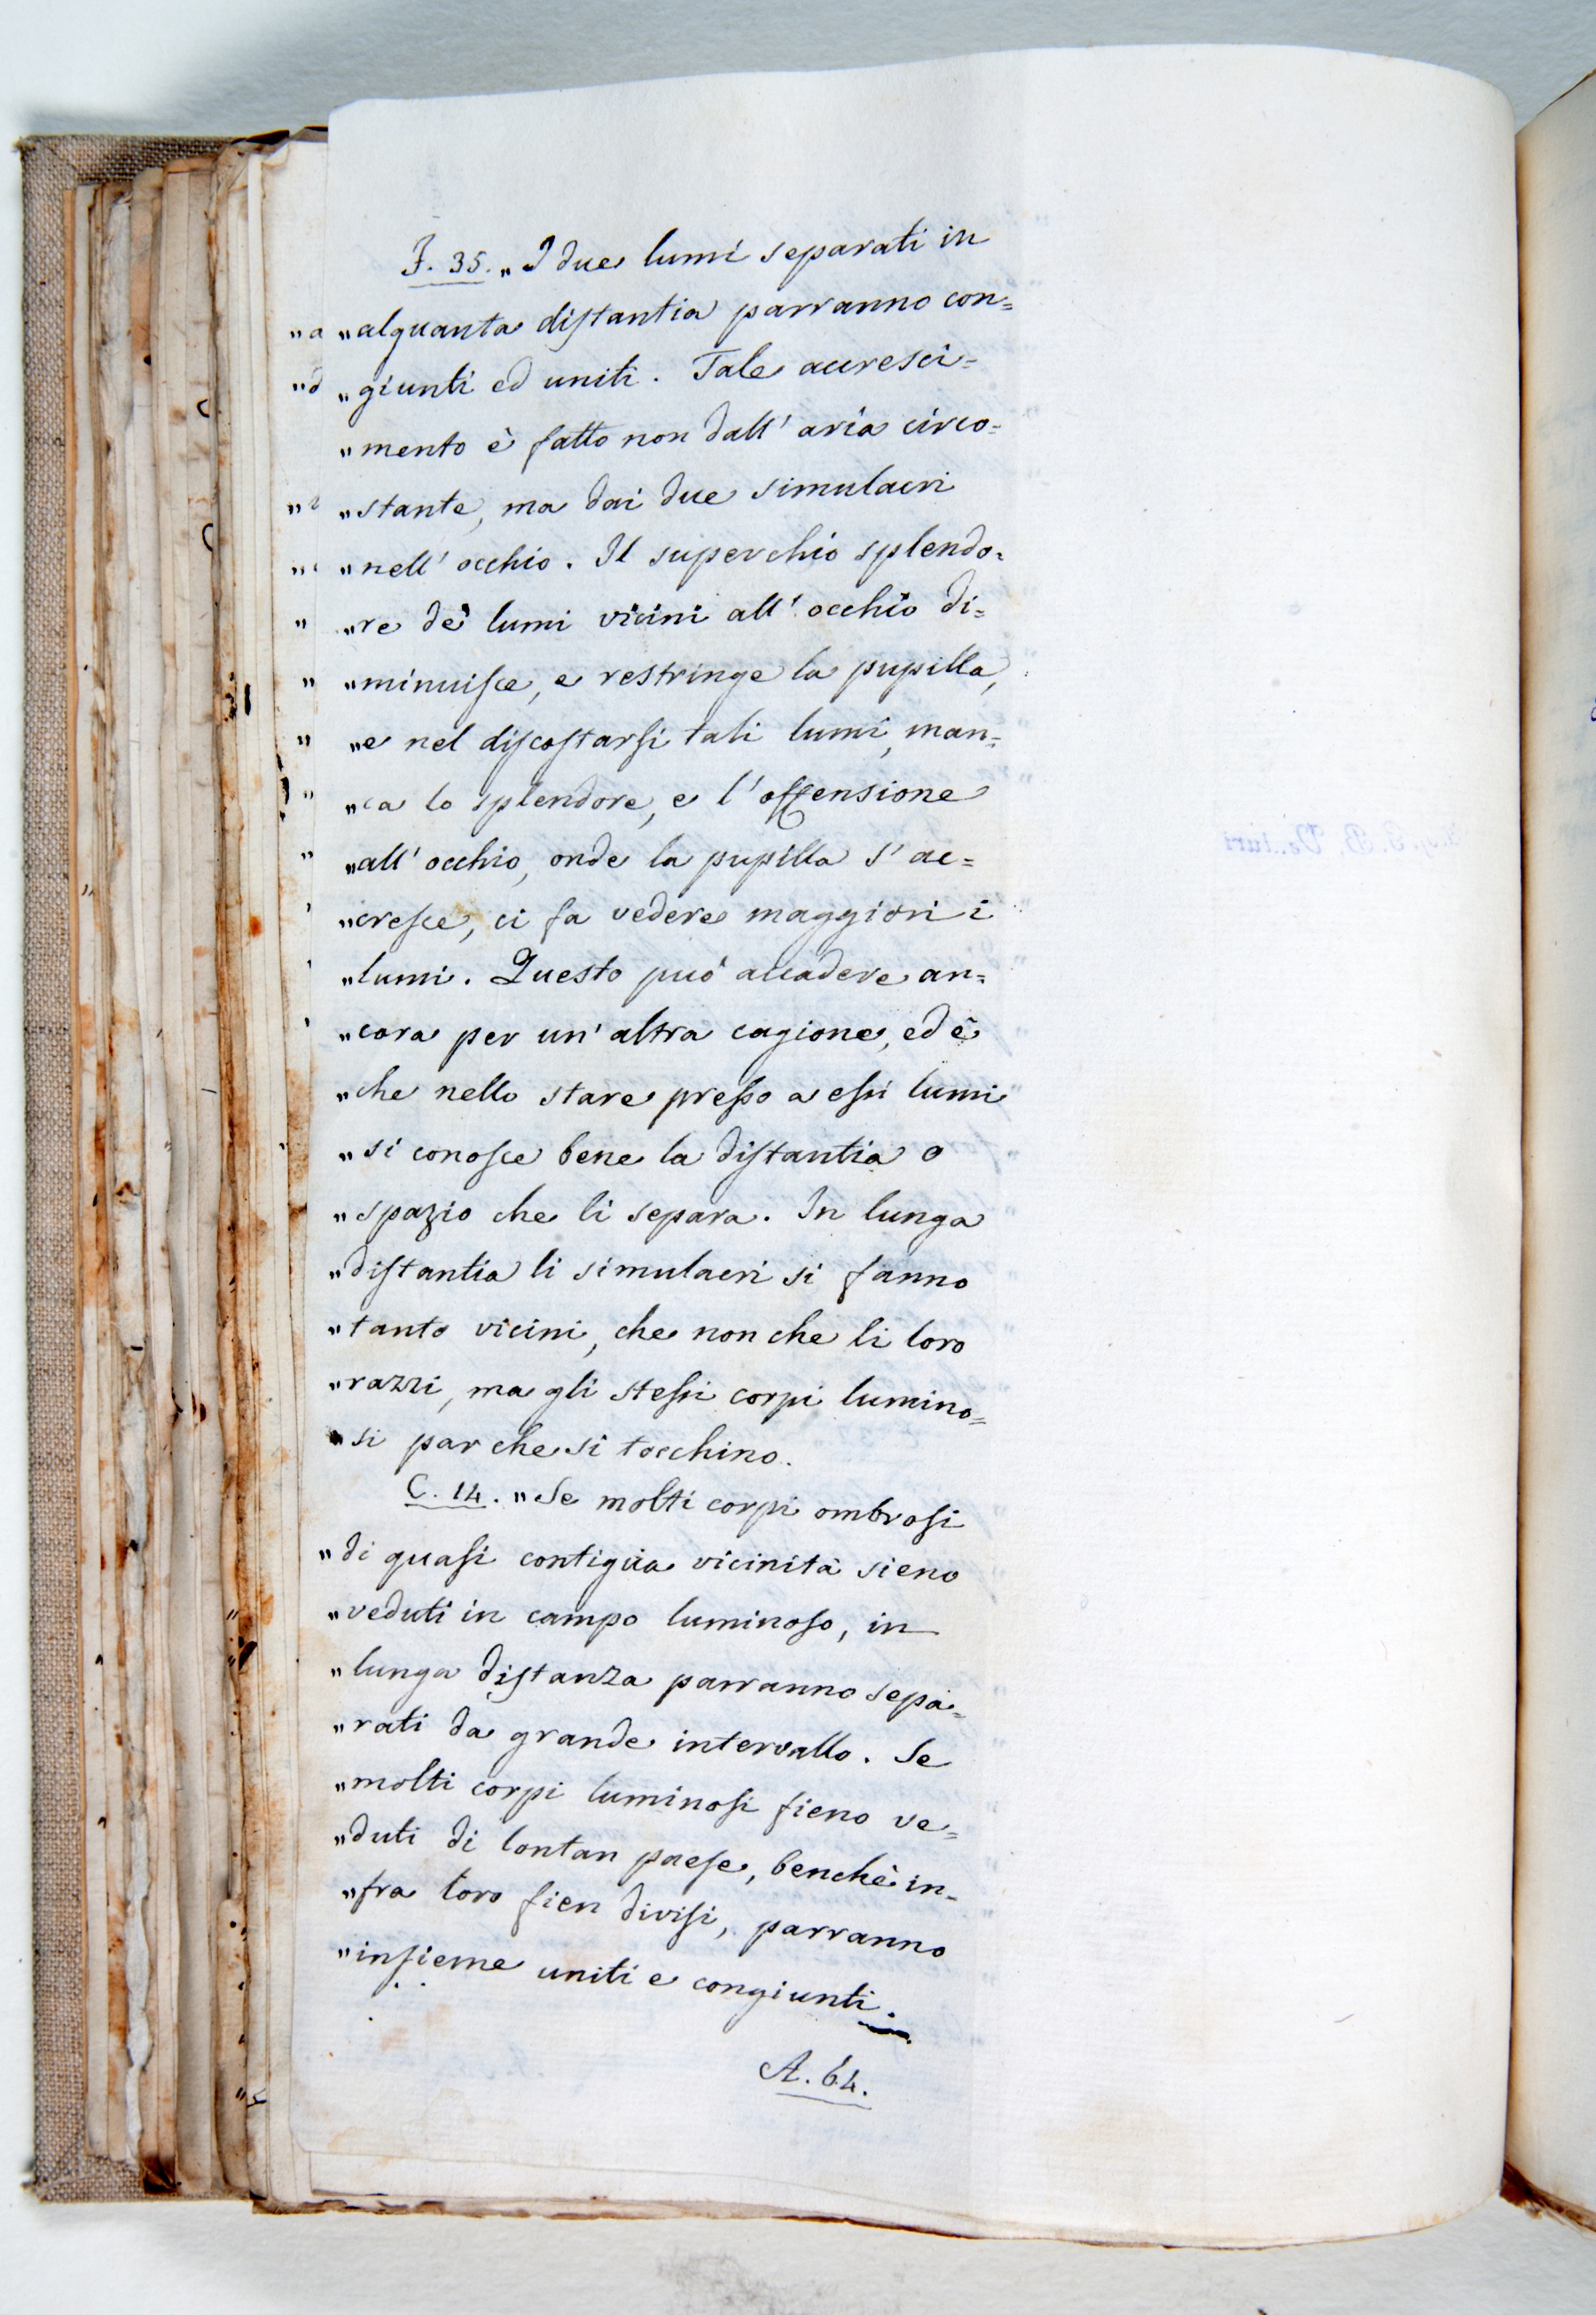 F. 35. „ I due lumi separati in
„ alquanta distantia parranno con=
„ giunti ed uniti. Tale accresci=
„ mento è fatto non dall' aria circo=
„ stante, ma dai due simulacri
„ nell' occhio. Il superchio splendo=
„ re de' lumi vicini all' occhio di=
„ minuisce, e restringe la pupilla,
„ e nel discostarsi tali lumi, man=
„ ca lo splendore, e l' offensione
„ all' occhio, onde la pupilla s' ac=
„ cresce, ci fa vedere maggiori i
„ lumi. Questo può accadere an=
„ cora per un' altra cagione, ed è
„ che nello stare presso a essi lumi
„ si conosce bene la distantia o
„ spazio che li separa. In lunga
„ distantia li simulacri si fanno
„ tanto vicini, che non che li loro
„ razzi, ma gli stessi corpi lumino=
„ si par che si tocchino.
C. 14. „ Se molti corpi ombrosi
„ di quasi contigua vicinità sieno
„ veduti in campo luminoso, in
„ lunga distanza parranno sepa=
„ rati da grande intervallo. Se
„ molti corpi luminosi fieno ve=
„ duti di lontan paese, benchè in=
„ fra loro fien divisi, parranno
„ insieme uniti e congiunti.
A. 64.